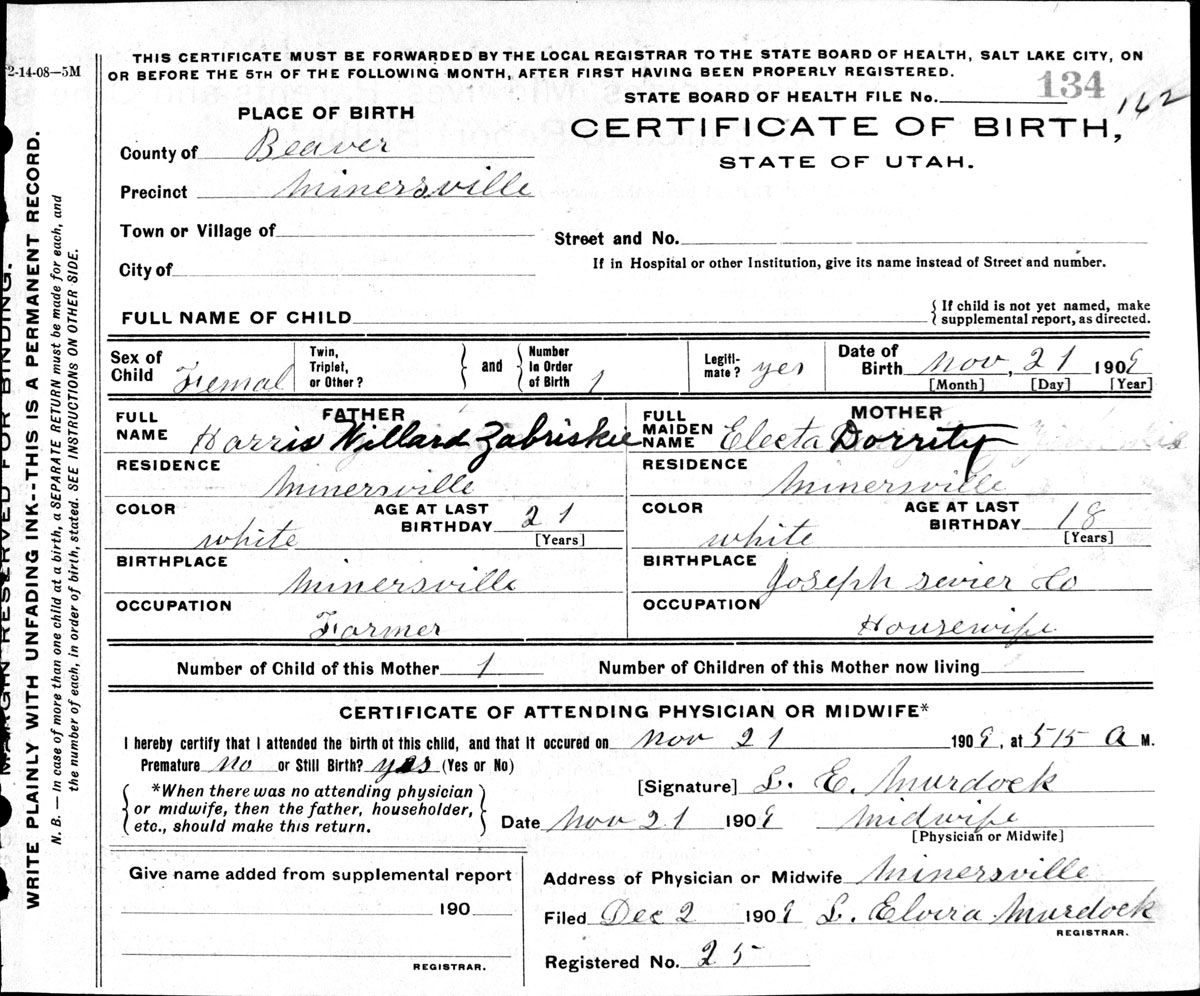 2-14-08—5M
THIS CERTIFICATE MUST BE FORWARDED BY THE LOCAL REGISTRAR TO THE STATE BOARD OF HEALTH, SALT LAKE CITY, ON
OR BEFORE THE 5TH OF THE FOLLOWING MONTH, AFTER FIRST HAVING BEEN PROPERLY REGISTERED.
STATE BOARD OF HEALTH FILE No. 134 162
PLACE OF BIRTH
CERTIFICATE OF BIRTH,
STATE OF UTAH.
County of Beaver
Precinct Minersville
Town or Village of
Street and No.
City of
If in Hospital or other Institution, give its name instead of Street and number.
FULL NAME OF CHILD
{ If child is not yet named, make
supplemental report, as directed.
Sex of Child Femal
Twin, Triplet, or Other?
and
Number in Order of Birth 1
Legiti-mate? yes
Date of Birth Nov, 21 1909
[Month] [Day] [Year]
FATHER
FULL NAME Harris Willard Zabriskie
RESIDENCE
Minersville
COLOR
white
AGE AT LAST BIRTHDAY 21
[Years]
BIRTHPLACE
Minersville
OCCUPATION
Farmer
MOTHER
FULL MAIDEN NAME Electa Dorrity
RESIDENCE
Minersville
COLOR
white
AGE AT LAST BIRTHDAY 18
[Years]
BIRTHPLACE
Joseph sevier Co
OCCUPATION
Housewife
Number of Child of this Mother 1
Number of Children of this Mother now living
CERTIFICATE OF ATTENDING PHYSICIAN OR MIDWIFE*
I hereby certify that I attended the birth of this child, and that it occured on Nov 21 1909, at 515 A M.
Premature no or Still Birth? yes (Yes or No)
*When there was no attending physician
or midwife, then the father, householder,
etc., should make this return.
[Signature] L. E. Murdock
Date Nov 21 1909 Midwife
[Physician or Midwife]
Give name added from supplemental report
190
REGISTRAR.
Address of Physician or Midwife Minersville
Filed Dec 2 1909 L. Elvira Murdock
REGISTRAR.
Registered No. 25
MARGIN RESERVED FOR BINDING.
WRITE PLAINLY WITH UNFADING INK--THIS IS A PERMANENT RECORD.
N. B. — In case of more than one child at a birth, a SEPARATE RETURN must be made for each, and
the number of each, in order of birth, stated. SEE INSTRUCTIONS ON OTHER SIDE.